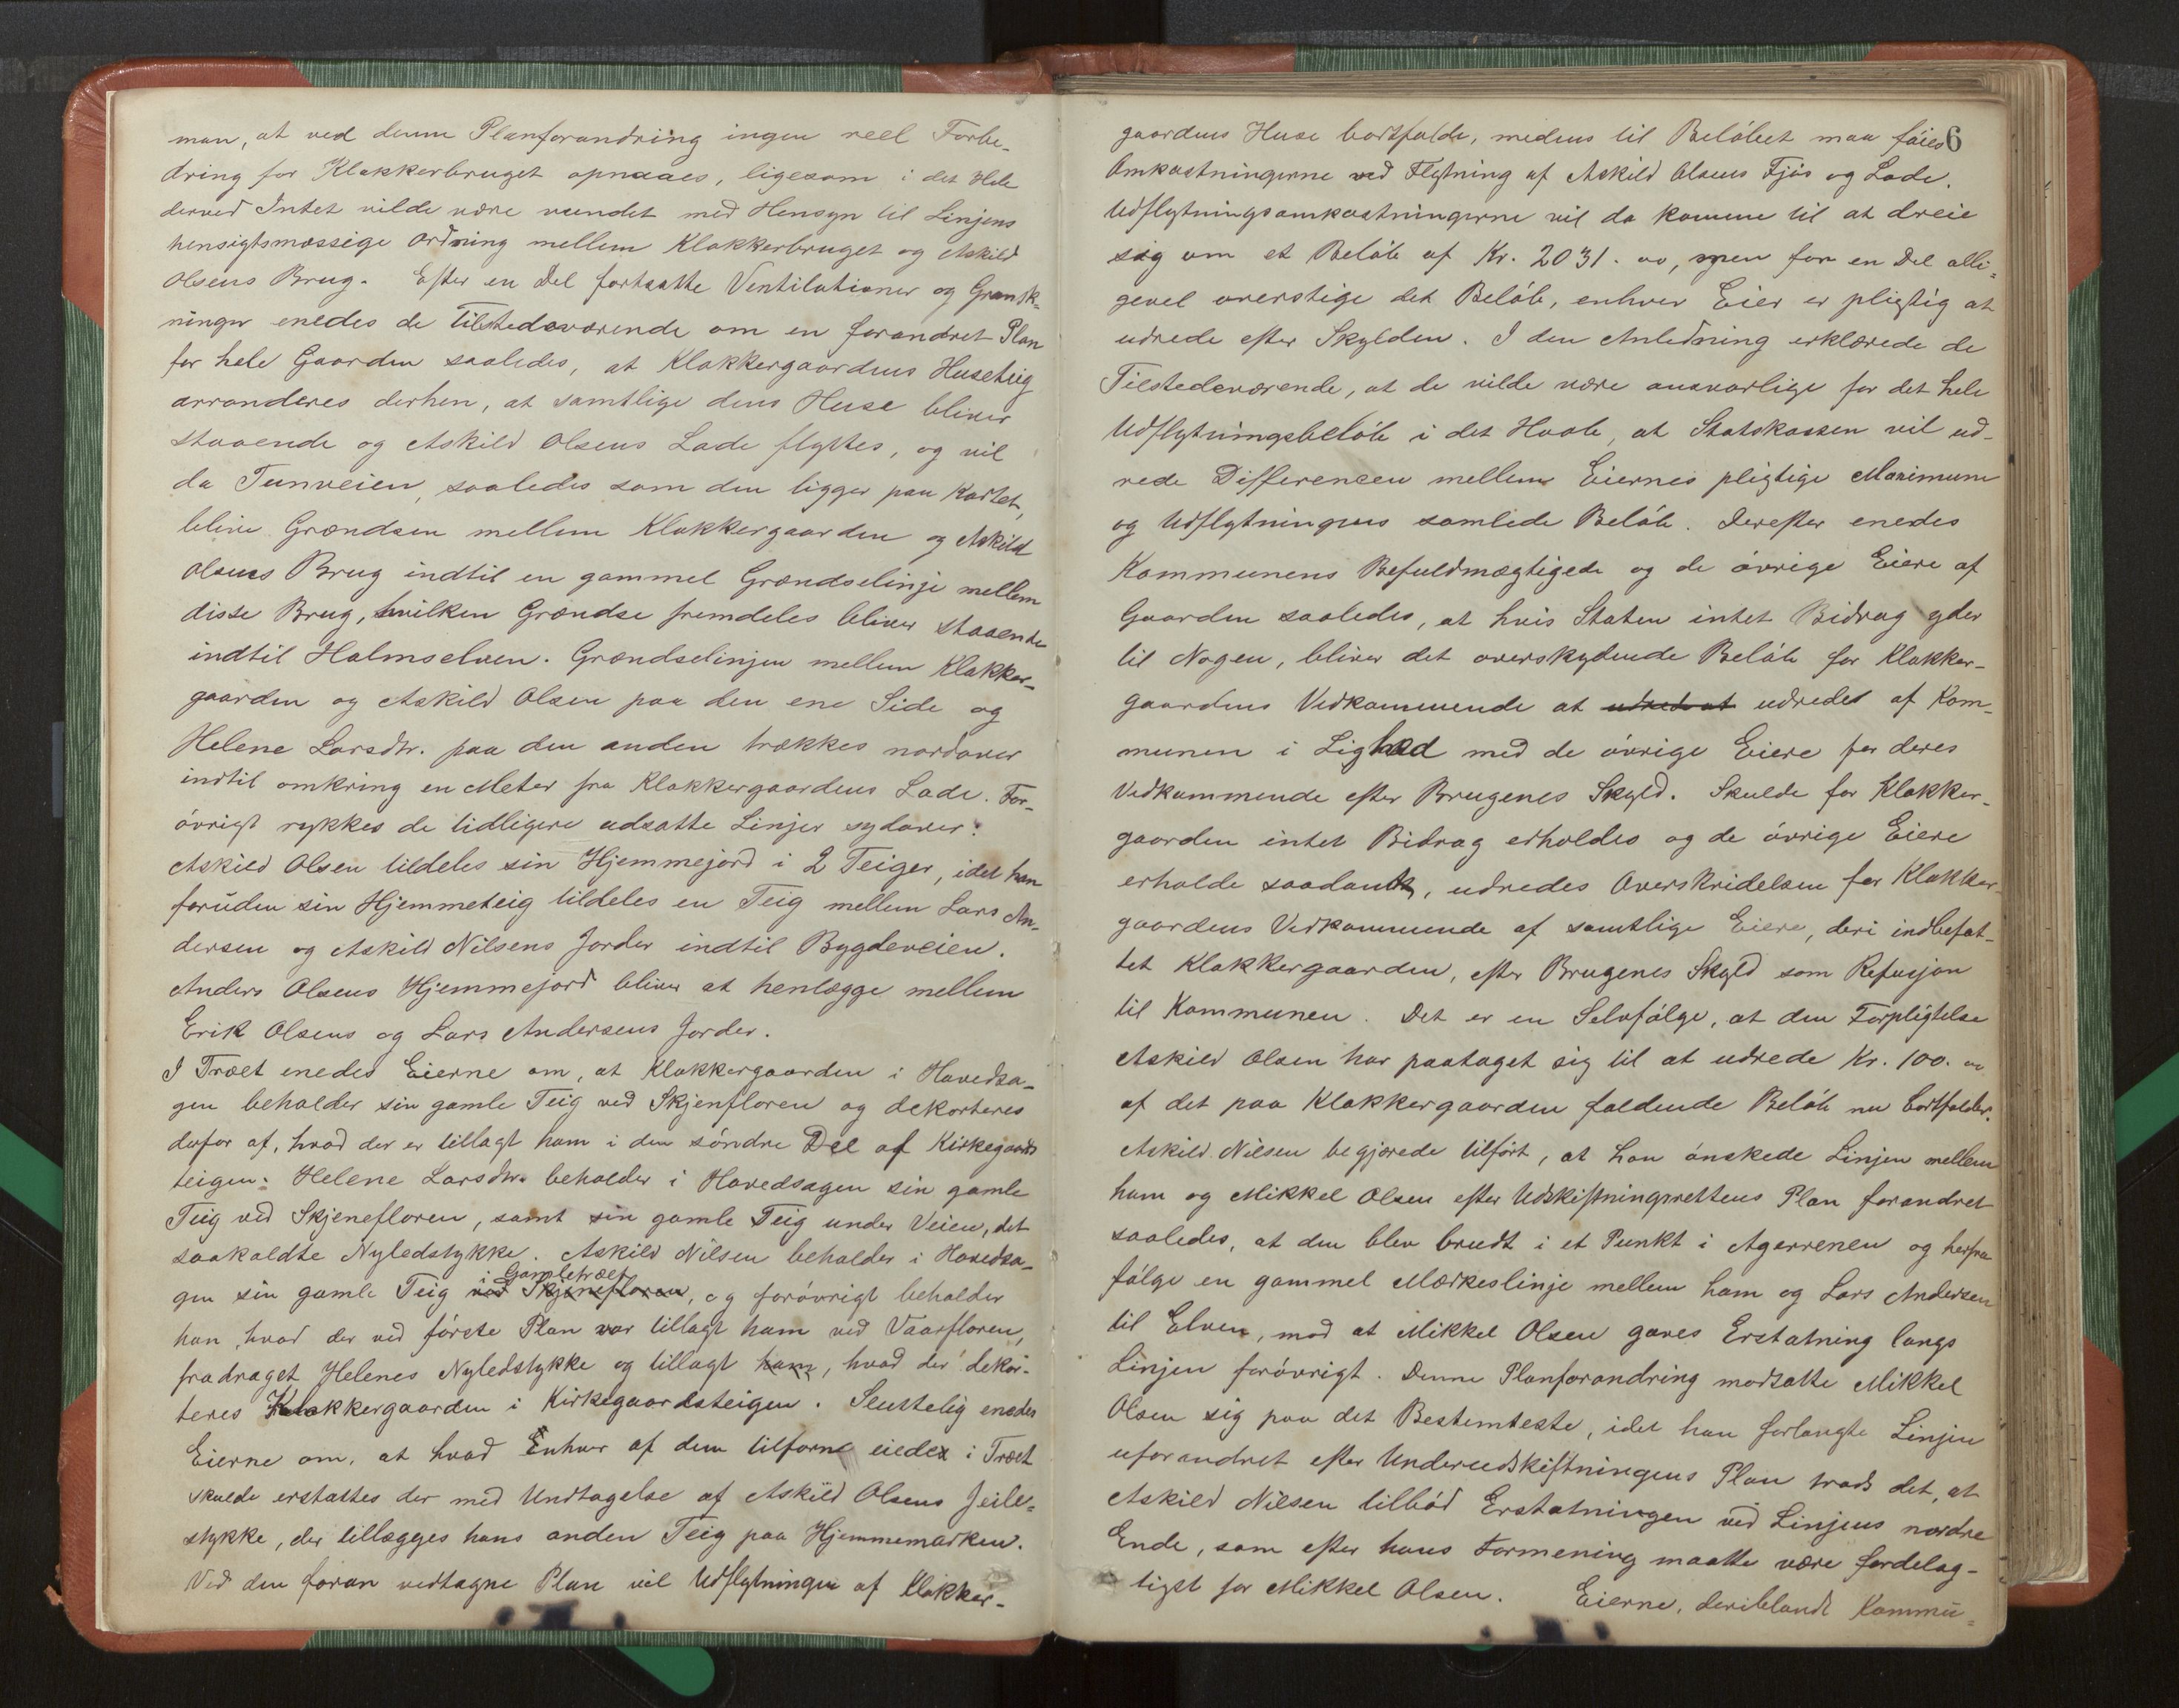 man, at ved denne Planforandring ingen reel Forbe-
dring for Klokkerbruget opnaaes, ligesom i det Hele
derved Intet vilde være vundet med Hensyn til Linjens
hensigtsmæssige Ordning mellem Klokkerbruget og Askild
Olsens Brug. Efter en Del fortsatte Ventilationer og Gransk-
ninger enedes de Tilstedeværende om en forandret Plan
for hele Gaarden saaledes, at Klokkergaardens Huseteig
arranderes derhen, at samtlige dens Huse bliver
staaende og Askild Olsens Lade flyttes, og vil
da Tunveien, saaledes som den ligger paa Kartet,
blive Grændsen mellem Klokkergaarden og Askild
Olsens Brug indtil en gammel Grændselinje mellem
disse Brug, hvilken Grændse fremdeles bliver staaende
indtil Holmselven. Grændselinjen mellem Klokker-
gaarden og Askild Olsen paa den ene Side og
Helene Larsdtr. paa den anden trækkes nordover
indtil omkring en Meter fra Klokkergaardens Lade. For-
øvrigt rykkes de tidligere udsatte Linjer sydover.
Askild Olsen tildeles sin Hjemmejord i 2 Teiger, idet han
foruden sin Hjemmeteig tildeles en Teig mellem Lars An-
dersen og Askild Nilsens Jorder indtil Bygdeveien.
Anders Olsens Hjemmejord bliver at henlægge mellem
Erik Olsens og Lars Andersens Jorder.
I Træet enedes Eierne om, at Klokkergaarden i Havedsa-
gen beholder sin gamle Teig ved Skjenfloren og dekorteres
derfor af, hvad der er tillagt ham i den søndre Del af Kirkegaards
teigen. Helene Larsdtr. beholder i Havedsagen sin gamle
Teig ved Skjenefloren, samt sin gamle Teig under Veien, det
saakaldte Nyledstykke. Askild Nilsen beholder i Havedsa-
i Gamletræet
gen sin gamle Teig ved Skjenefloren, og forøvrigt beholder
han, hvad der ved første Plan var tillagt ham ved Vaarfloren,
fradraget Helenes Nyledstykke og tillagt ham, hvad der dekor-
teres Klokkergaarden i Kirkegaardsteigen. Sluttelig enedes
Eierne om, at hvad Enhver af dem tilforne eiede i Træet
skulde erstattes der med Undtagelse af Askild Olsens Jeile-
stykke, der tillægges hans anden Teig paa Hjemmemarken.
Ved den foran vedtagne Plan vil Udflytningen af Klokker-
6
gaardens Huse bortfalde, medens til Beløbet maa føies
Omkostningerne ved Flytning af Askild Olsens Fjøs og Lade.
Udflytningsomkostningerne vil da komme til at dreie
sig om et Beløb af Kr. 2031. oo, men for en Del alli-
gevel overstige det Beløb, enhver Eier er pligtig at
udrede efter Skylden. I den Anledning erklærede de
Tilstedeværende, at de vilde være ansvarlige for det hele
Udflytningsbeløb i det Haab, at Statskassen vil ud-
rede Differencen mellem Eiernes pligtige Maximum
og Udflytningens samlede Beløb. Derefter enedes
Kommunens Befuldmægtigede og de øvrige Eiere af
Gaarden saaledes, at hvis Staten intet Bidrag yder
til Nogen, bliver det overskydende Beløb for Klokker-
gaardens Vedkommende at udredes af Kom-
munen i Lighed med de øvrige Eiere for deres
Vedkommende efter Brugenes Skyld. Skulde for Klokker-
gaarden intet Bidrag erholdes og de øvrige Eiere
erholde saadant, udredes Overskridelsen for Klokker-
gaardens Vedkommende af samtlige Eiere, deri indbefat-
tet Klokkergaarden, efter Brugenes Skyld som Refusjon
til Kommunen. Det er en Selvfølge, at den Forpligtelse
Askild Olsen har paataget sig til at udrede Kr. 100. oo
af det paa Klokkergaarden faldende Beløb nu bortfalder.
Askild Nilsen begjærede tilført, at han ønskede Linjen mellem
ham og Mikkel Olsen efter Udskiftningsrettens Plan forandret
saaledes, at den blev brudt i et Punkt i Agerrenen og herfra
følge en gammel Mærkeslinje mellem ham og Lars Andersen
til Elven, mod at Mikkel Olsen gaves Erstatning langs
Linjen forøvrigt. Denne Planforandring modsatte Mikkel
Olsen sig paa det Bestemteste, idet han forlangte Linjen
uforandret efter Underudskiftningens Plan trods det, at
Askild Nilsen tilbød Erstatningen ved Linjens nordre
Ende, som efter hans Formening maatte være fordelag-
tigst for Mikkel Olsen. Eierne, deriblandt Kommu-